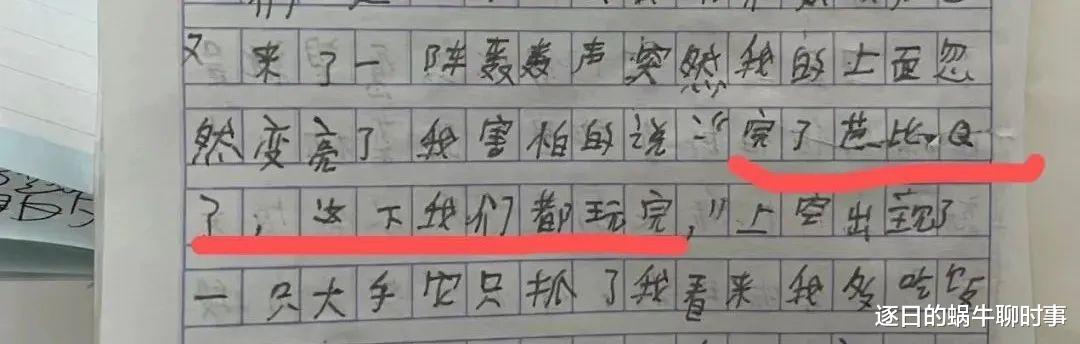 又来了一阵轰轰声突然我的上面忽
然变亮了我害怕的说:“完了芭比Q
了,这下我们都玩完,”上空出现了
一只大手它只抓了我看来我多吃饭
逐日的蜗牛聊时事